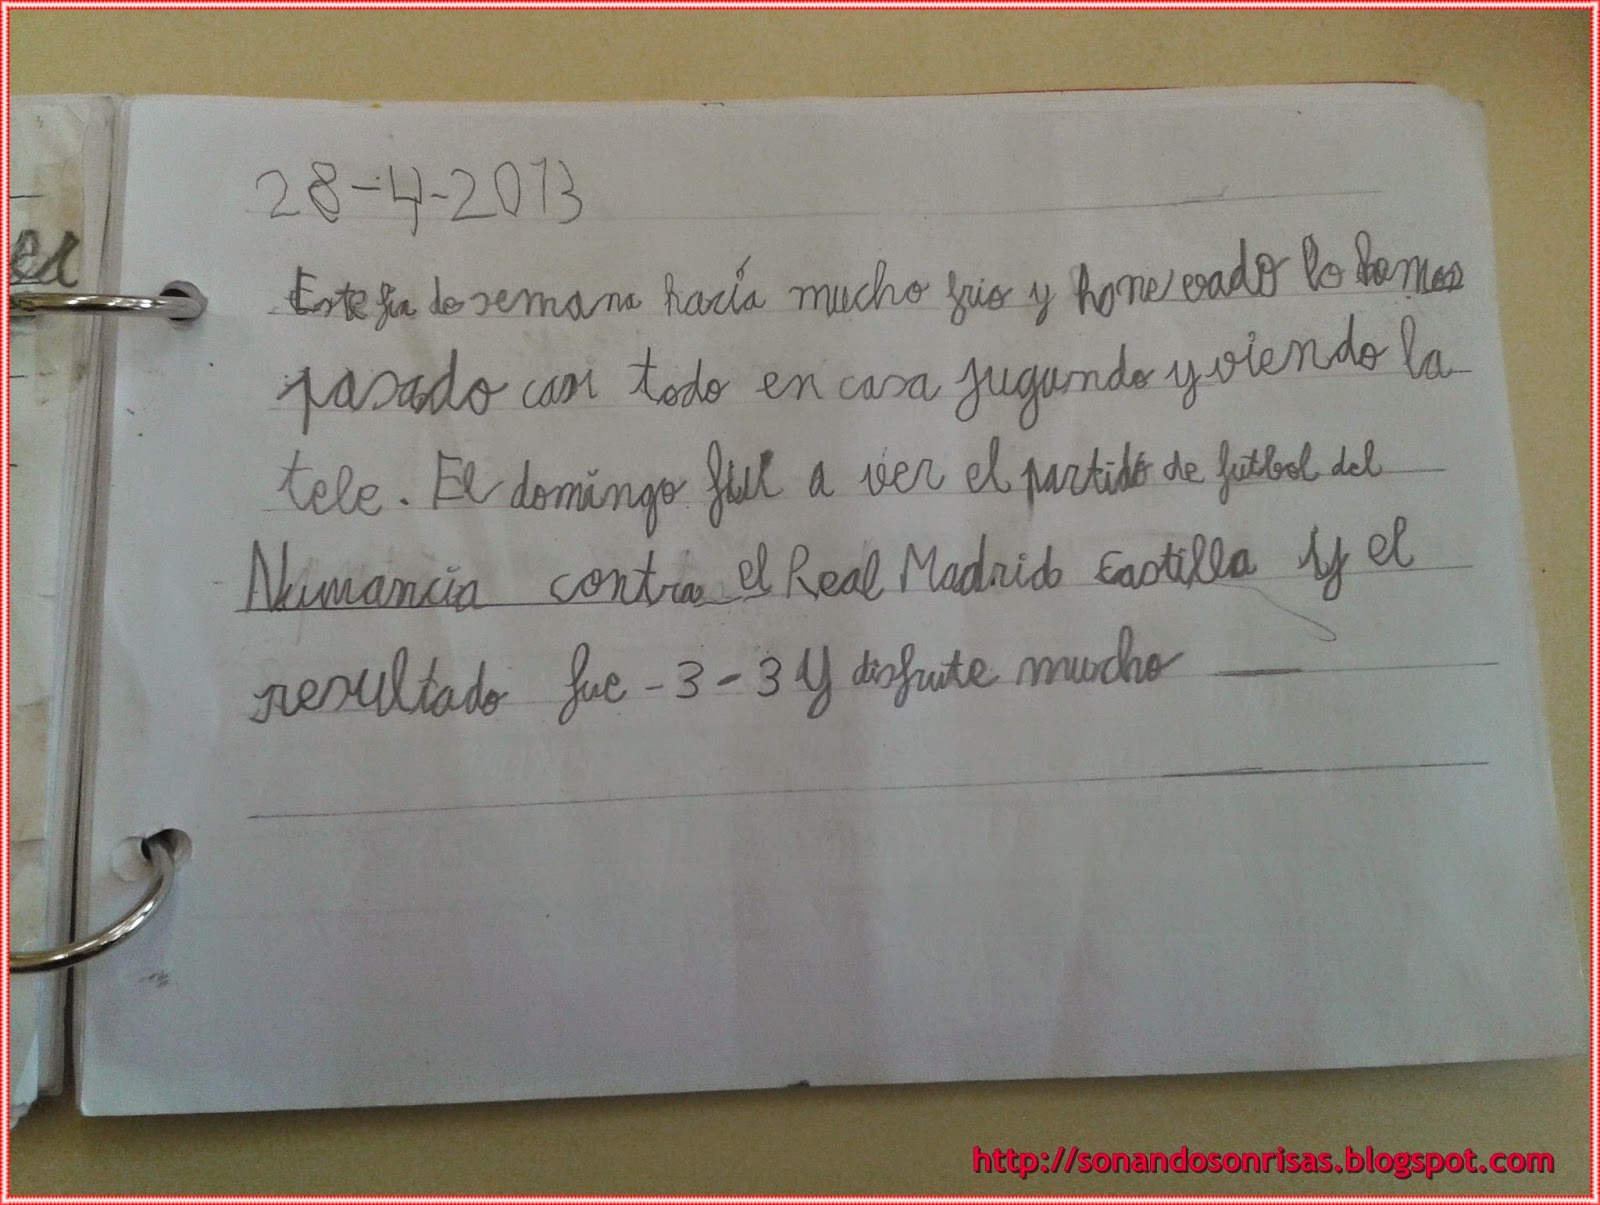 28-4-2013
Este fin de semana hacía mucho frio y ha nevado lo hemos
pasado casi todo en casa jugando y viendo la
tele. El domingo fui a ver el partido de futbol del
Numancia contra el Real Madrid Castilla y el
resultado fue -3-3 y disfrute mucho
http://sonandosonrisas.blogspot.com